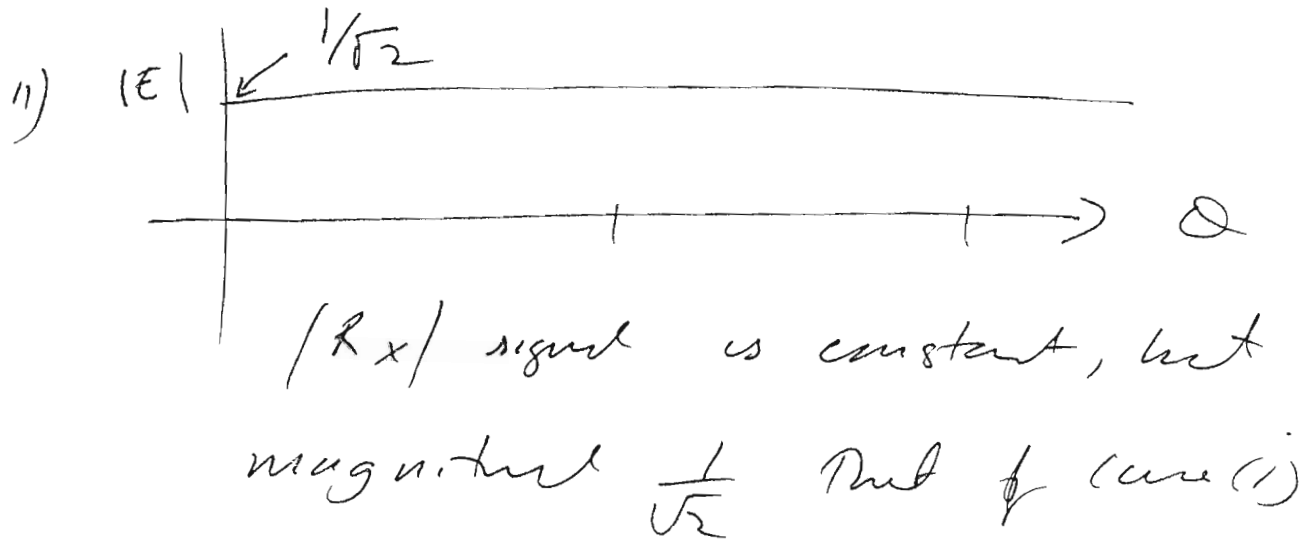 1/√2
11) |E|
θ
|Rx| signal is constant, but
magnitude 1/√2 that of case (i)